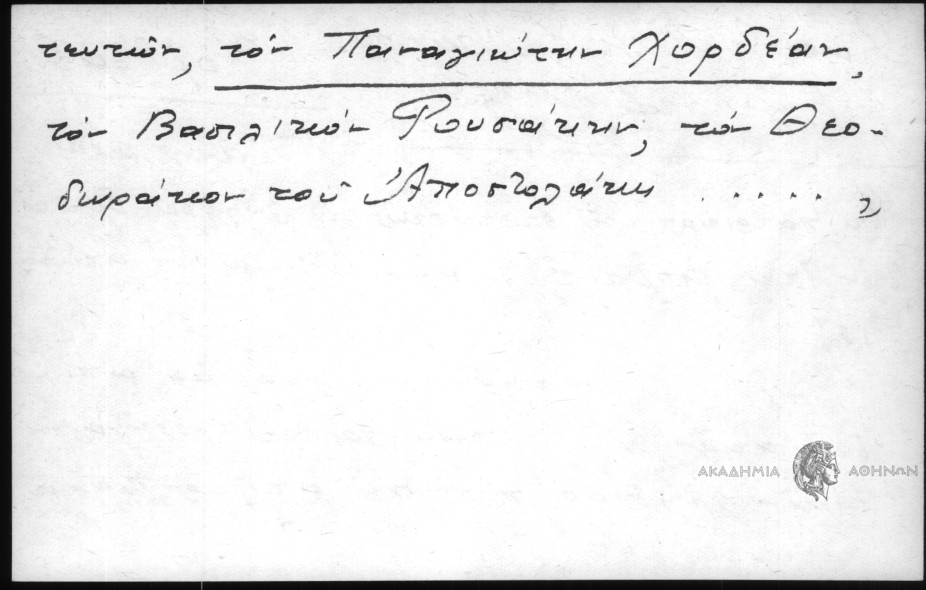 τευτών, τόν Παναγιώτην Χορδέαν,
τόν Βασιλικόν Ρουσάκην, τόν Θεο-
δωράκον τοῦ Ἀποστολάκη . . . . . "
ΑΚΑΔΗΜΙΑ ΑΘΗΝΩΝ